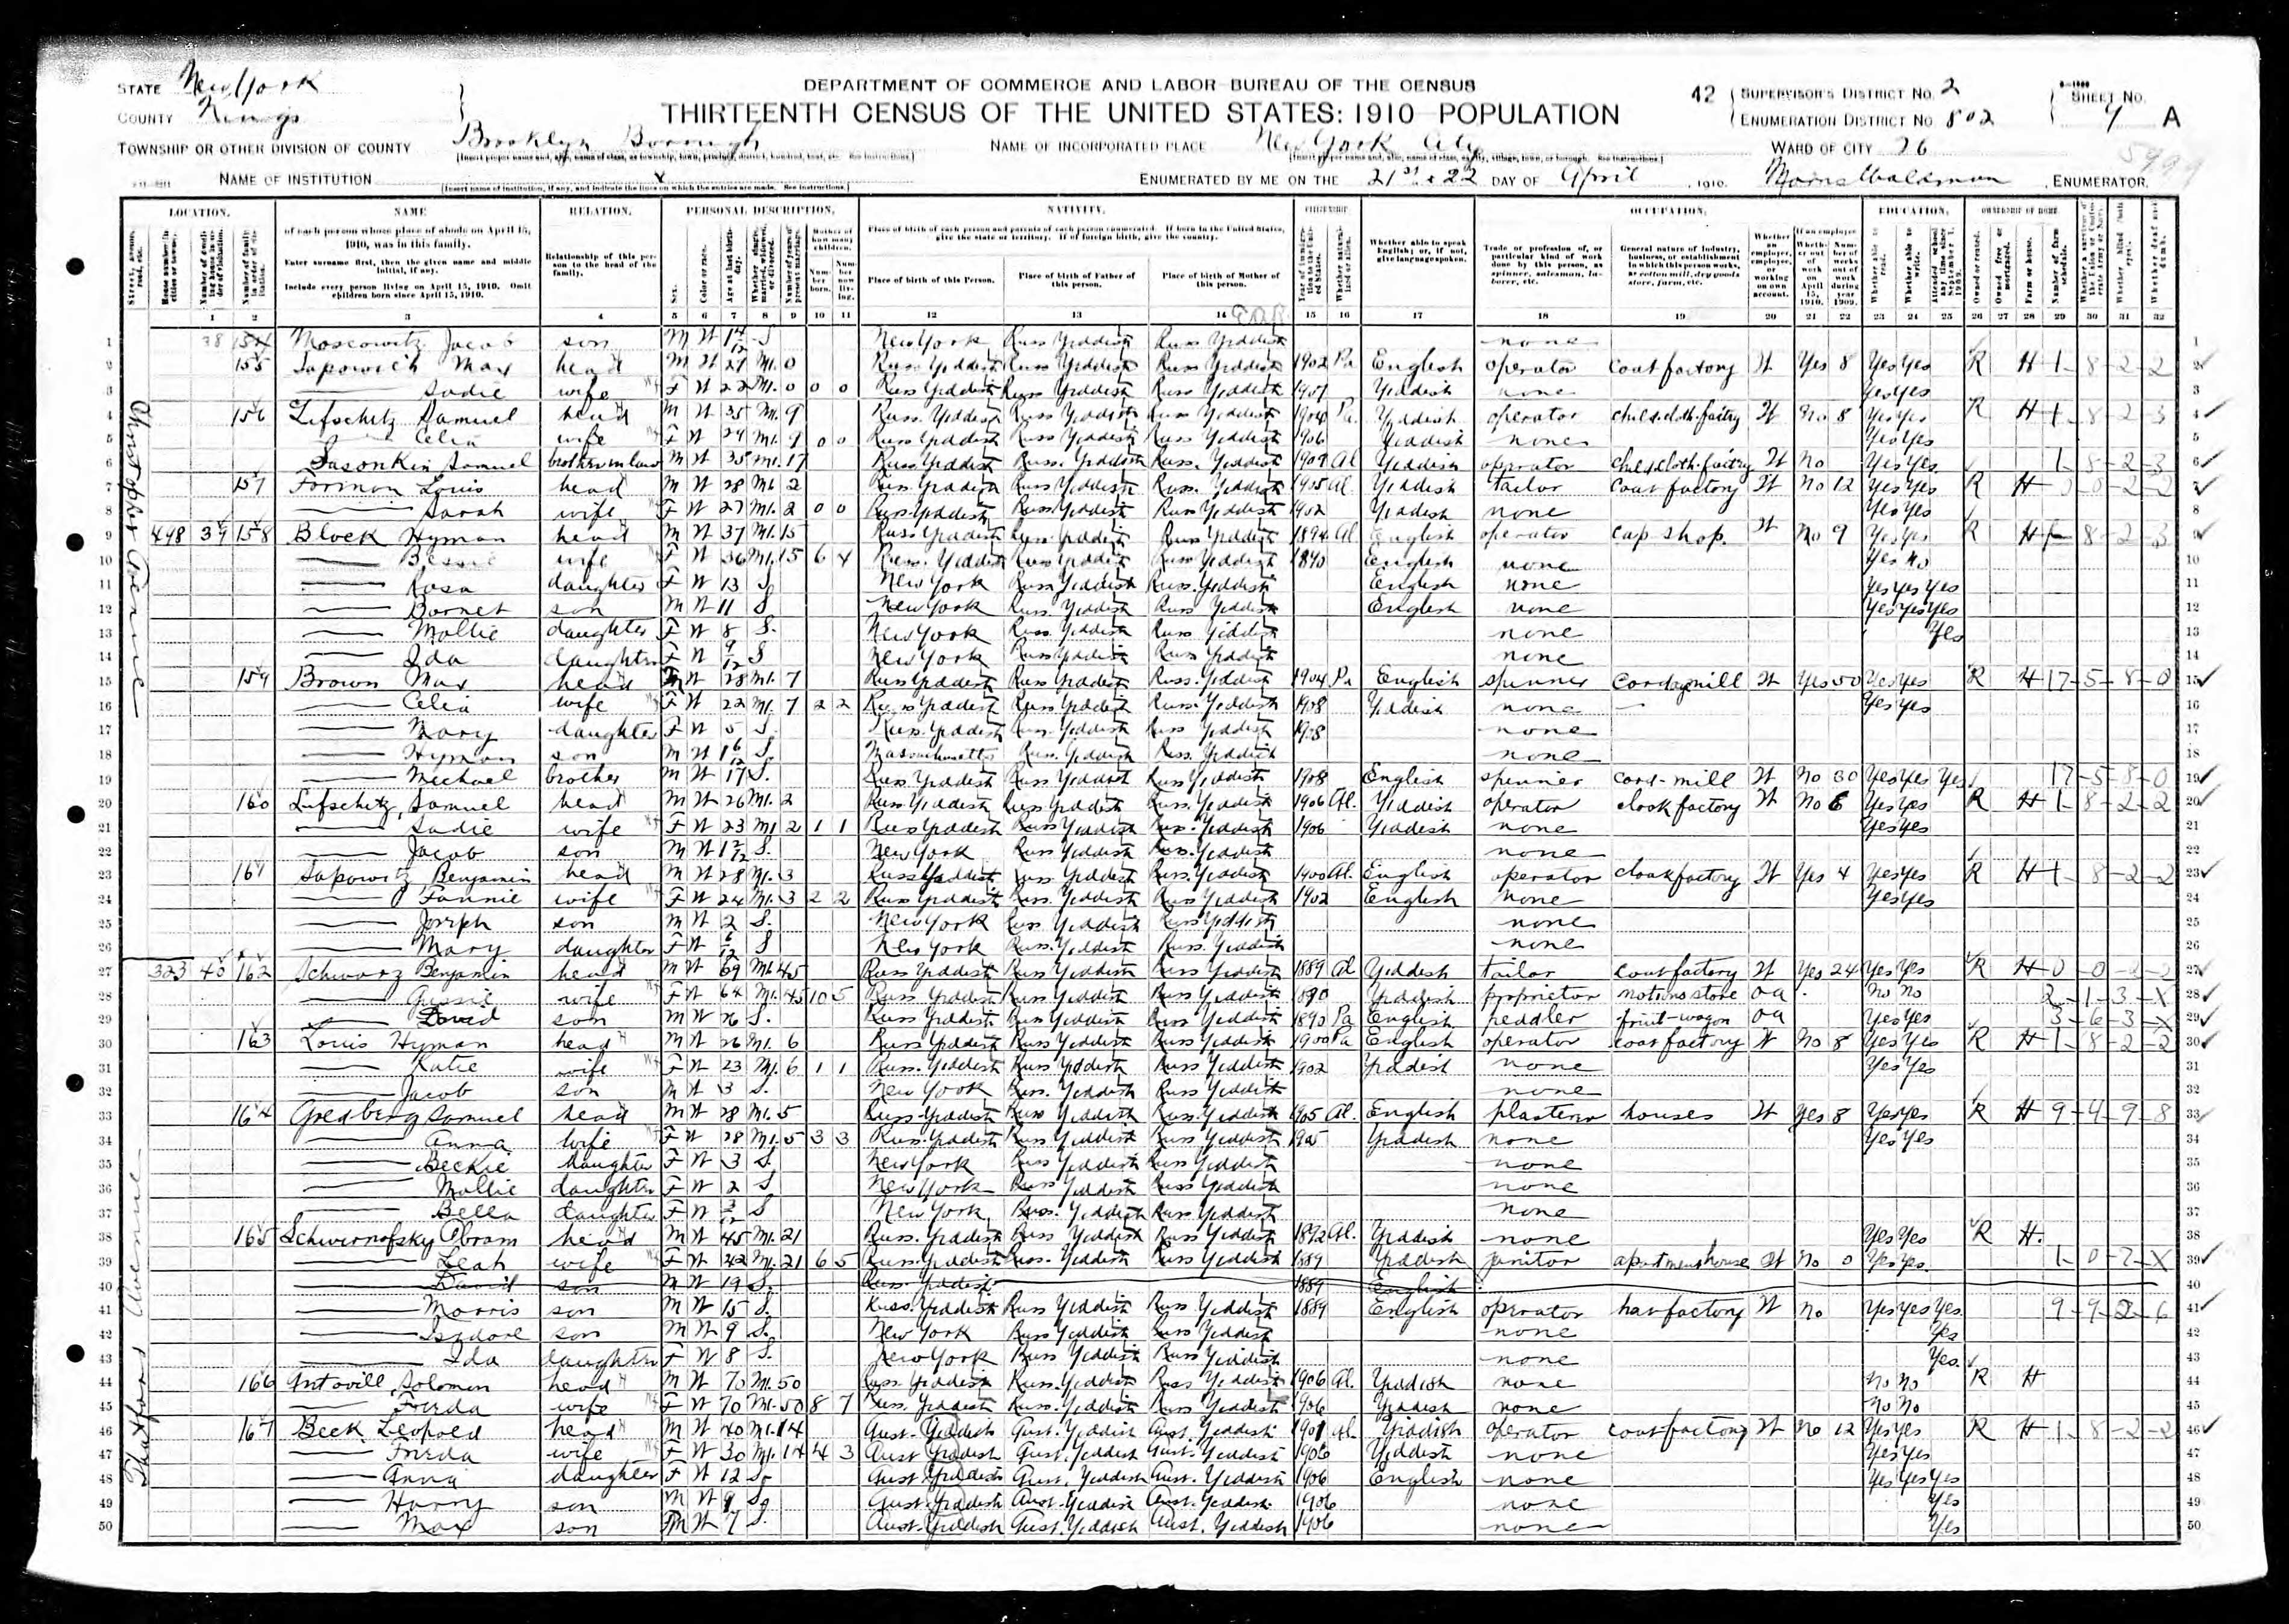 DEPARTMENT OF COMMERCE AND LABOR—BUREAU OF THE CENSUS
THIRTEENTH CENSUS OF THE UNITED STATES: 1910—POPULATION
STATE New York
COUNTY Kings
TOWNSHIP OR OTHER DIVISION OF COUNTY Brooklyn Borough
NAME OF INSTITUTION x
NAME OF INCORPORATED PLACE New York City
ENUMERATED BY ME ON THE 21st & 22 DAY OF April, 1910.
42 SUPERVISOR'S DISTRICT No. 2
ENUMERATION DISTRICT No. 802
SHEET No. 7 A
WARD OF CITY 26
Morris Waldman, ENUMERATOR.
LOCATION. NAME RELATION. PERSONAL DESCRIPTION. NATIVITY. CITIZENSHIP. OCCUPATION. EDUCATION. OWNERSHIP OF HOME.
of each person whose place of abode on April 15, 1910, was in this family.
Enter surname first, then the given name and middle initial, if any.
Include every person living on April 15, 1910. Omit children born since April 15, 1910.
Relationship of this person to the head of the family.
Place of birth of each person and parents of each person enumerated. If born in the United States, give the state or territory. If of foreign birth, give the country.
Place of birth of this Person. Place of birth of Father of this person. Place of birth of Mother of this person.
Whether able to speak English; or, if not, give language spoken.
Trade or profession of, or particular kind of work done by this person, as spinner, salesman, laborer, etc.
General nature of industry, business, or establishment in which this person works, as cotton mill, dry goods store, farm, etc.
Christopher Avenue
1 78 154 Moscowitz Jacob son M W 1 4/12 S New York Russ Yiddish Russ Yiddish none
2 155 Sapowich Max head M W 27 M1 0 Russ Yiddish Russ Yiddish Russ Yiddish 1902 Pa English operator coat factory W Yes 8 Yes Yes R H 1-8-2-2
3 Sadie wife F W 22 M1 0 0 0 Russ Yiddish Russ Yiddish Russ Yiddish 1907 Yiddish none Yes Yes
4 156 Lifschitz Samuel head M W 35 M1 9 Russ. Yiddish Russ Yiddish Russ Yiddish 1904 Pa Yiddish operator child cloth. factry W No 8 Yes Yes R H 1-8-2-3
5 Celia wife F W 29 M1 9 0 0 Russ Yiddish Russ Yiddish Russ Yiddish 1906 Yiddish none Yes Yes
6 Sasonkin Samuel brother in law M W 35 M1 17 Russ. Yiddish Russ. Yiddish Russ. Yiddish 1909 Al Yiddish operator child cloth. factry W No Yes Yes 1-8-2-3
7 157 Forman Louis head M W 28 M1 2 Russ Yiddish Russ Yiddish Russ. Yiddish 1905 Al Yiddish tailor coat factory W No 12 Yes Yes R H 0-0-2-2
8 Sarah wife F W 27 M1 2 0 0 Russ Yiddish Russ Yiddish Russ Yiddish 1902 Yiddish none Yes Yes
9 498 39 158 Block Hyman head M W 37 M1 15 Russ Yiddish Russ Yiddish Russ Yiddish 1894 Al English operator cap shop. W No 9 Yes Yes R H 8-2-3
10 Bessie wife F W 36 M1 15 6 4 Russ. Yiddish Russ Yiddish Russ Yiddish 1890 English none Yes No
11 Rosa daughter F W 13 S New York Russ Yiddish Russ. Yiddish English none Yes Yes Yes
12 Barnet son M W 11 S New York Russ. Yiddish Russ Yiddish English none Yes Yes Yes
13 Mollie daughter F W 8 S. New York Russ. Yiddish Russ Yiddish none Yes
14 Ida daughter F W 9/12 S New York Russ Yiddish Russ Yiddish none
15 159 Brown Max head M W 28 M1 7 Russ Yiddish Russ Yiddish Russ. Yiddish 1904 Pa English spinner cordage mill W Yes 50 Yes Yes R H 17-5-8-0
16 Celia wife F W 22 M1 7 2 2 Russ Yiddish Russ Yiddish Russ. Yiddish 1908 Yiddish none Yes Yes
17 Mary daughter F W 5 S. Russ. Yiddish Russ. Yiddish Russ Yiddish 1908 none
18 Hyman son M W 1 6/12 S. Massachusetts Russ. Yiddish Russ. Yiddish none
19 Michael brother M W 17 S. Russ Yiddish Russ Yiddish Russ Yiddish 1908 English spinner cord-mill W No 30 Yes Yes Yes 17-5-8-0
20 160 Lifschitz, Samuel head M W 26 M1 2 Russ Yiddish Russ Yiddish Russ. Yiddish 1906 Al. Yiddish operator cloak factory W No 6 Yes Yes R H 1-8-2-2
21 Sadie wife F W 23 M1 2 1 1 Russ Yiddish Russ Yiddish Russ. Yiddish 1906 Yiddish none Yes Yes
22 Jacob son M W 1 2/12 S. New York Russ Yiddish Russ. Yiddish none
23 161 Sapowitz, Benjamin head M W 28 M1 3 Russ Yiddish Russ. Yiddish Russ. Yiddish 1900 Al. English operator cloak factory W Yes 4 Yes Yes R H 1-8-2-2
24 Fannie wife F W 24 M1 3 2 2 Russ Yiddish Russ. Yiddish Russ Yiddish 1902 English none Yes Yes
25 Joseph son M W 2 S. New York Russ Yiddish Russ Yiddish none
26 Mary daughter F W 6/12 S New York Russ. Yiddish Russ. Yiddish none
27 323 40 162 Schwarz Benjamin head M W 69 M1 45 Russ Yiddish Russ Yiddish Russ Yiddish 1889 Al Yiddish tailor coat factory W Yes 24 Yes Yes R H 0-0-2-2
28 Gussie wife F W 64 M1 45 10 5 Russ Yiddish Russ Yiddish Russ Yiddish 1890 Yiddish proprietor notions store oa No No 2-1-3-X
29 David son M W 26 S. Russ Yiddish Russ Yiddish Russ Yiddish 1890 Pa English peddler fruit-wagon oa Yes Yes 3-6-3-X
30 163 Louis Hyman head M W 26 M1 6 Russ Yiddish Russ Yiddish Russ Yiddish 1900 Pa English operator coat factory W No 8 Yes Yes R H 1-8-2-2
31 Katie wife F W 23 M1 6 1 1 Russ. Yiddish Russ Yiddish Russ Yiddish 1902 Yiddish none Yes Yes
32 Jacob son M W 3 S. New York Russ. Yiddish Russ Yiddish none
33 164 Goldberg Samuel head M W 28 M1 5 Russ Yiddish Russ Yiddish Russ. Yiddish 1905 Al. English plasterer houses W Yes 8 Yes Yes R H 9-4-9-8
34 Anna wife F W 28 M1 5 3 3 Russ. Yiddish Russ Yiddish Russ Yiddish 1905 Yiddish none Yes Yes
35 Beckie daughter F W 3 S. New York Russ Yiddish Russ Yiddish none
36 Mollie daughter F W 2 S New York Russ Yiddish Russ Yiddish none
37 Bella daughter F W 3/12 S New York Russ. Yiddish Russ Yiddish none
38 165 Schwernofsky Abram head M W 45 M1 21 Russ. Yiddish Russ Yiddish Russ Yiddish 1892 Al. Yiddish none Yes Yes R H.
39 Leah wife F W 42 M1 21 6 5 Russ. Yiddish Russ. Yiddish Russ Yiddish 1889 Yiddish janitor apartment house W No 0 Yes Yes 1-0-7-X
40 David son M W 19 S. Russ. Yiddish 1889 English
41 Morris son M W 15 S. Russ. Yiddish Russ Yiddish Russ Yiddish 1889 English operator hat factory W No Yes Yes Yes 9-9-2-6
42 Isadore son M W 9 S. New York Russ Yiddish Russ Yiddish none Yes
43 Ida daughter F W 8 S. New York Russ Yiddish Russ Yiddish none Yes.
Thatford Avenue
44 166 Solomon head M W 70 M1 50 Russ. Yiddish Russ. Yiddish Russ Yiddish 1906 Al. Yiddish none No No R H
45 Frieda wife F W 70 M1 50 8 7 Russ. Yiddish Russ. Yiddish Russ Yiddish 1906 Yiddish none No No
46 167 Beck Leopold head M W 40 M1 14 Aust. Yiddish Aust. Yiddish Aust. Yiddish 1907 Al. Yiddish operator coat factory W No 12 Yes Yes R H 1-8-2-2
47 Frieda wife F W 30 M1 14 4 3 Aust Yiddish Aust. Yiddish Aust. Yiddish 1906 Yiddish none Yes Yes
48 Anna daughter F W 12 S. Aust Yiddish Aust. Yiddish Aust. Yiddish 1906 English none Yes Yes Yes
49 Harry son M W 9 S. Aust. Yiddish Aust. Yiddish Aust. Yiddish 1906 none Yes
50 Max son M W 7 S. Aust. Yiddish Aust. Yiddish Aust. Yiddish 1906 none Yes